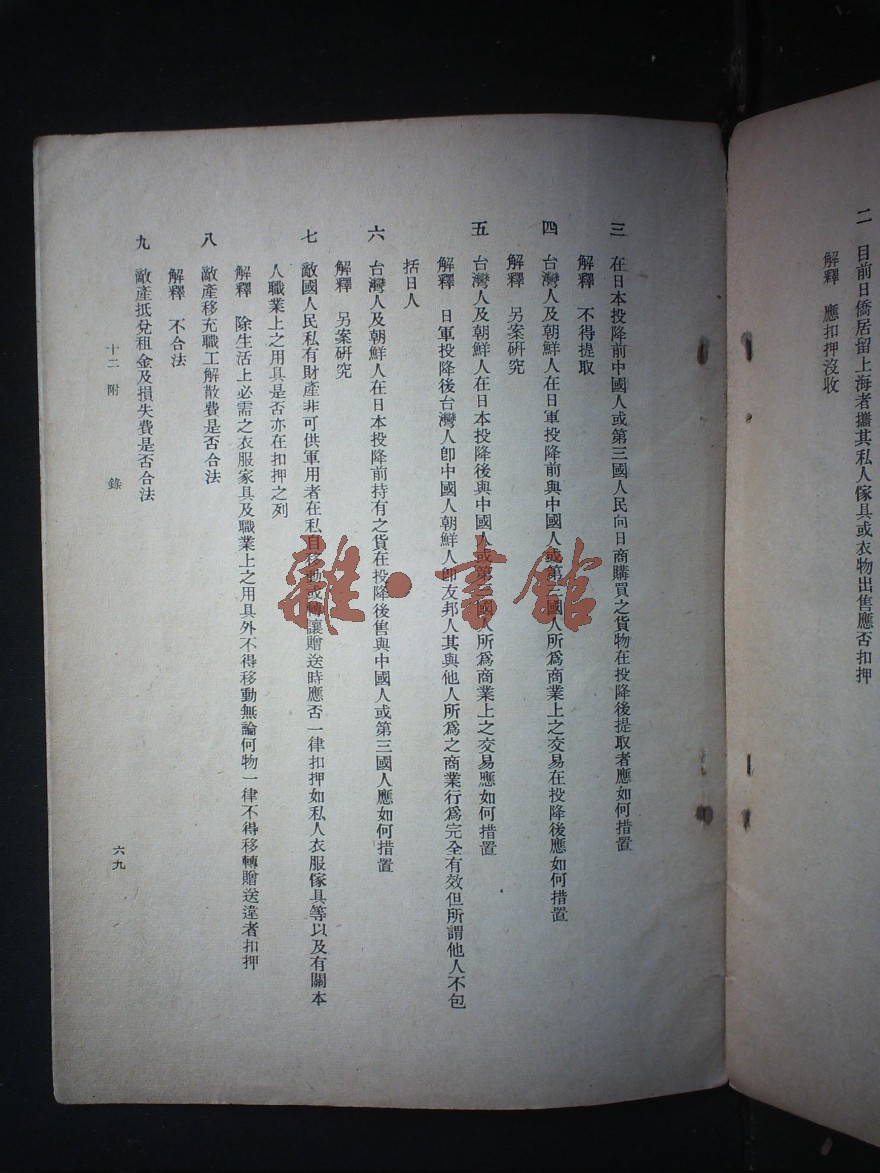 二　目前日僑居留上海者攜其私人傢具或衣物出售應否扣押
解釋　應扣押沒收
三　在日本投降前中國人或第三國人民向日商購買之貨物在投降後提取者應如何措置
解釋　不得提取
四　台灣人及朝鮮人在日軍投降前與中國人或第三國人所爲商業上之交易在投降後應如何措置
解釋　另案研究
五　台灣人及朝鮮人在日本投降後與中國人或第三國人所爲商業上之交易應如何措置
解釋　日軍投降後台灣人卽中國人朝鮮人卽友邦人其與他人所爲之商業行爲完全有效但所謂他人不包
括日人
六　台灣人及朝鮮人在日本投降前持有之貨在投降後售與中國人或第三國人應如何措置
解釋　另案研究
七　敵國人民私有財產非可供軍用者在私自移動或轉讓贈送時應否一律扣押如私人衣服傢具等以及有關本
人職業上之用具是否亦在扣押之列
解釋　除生活上必需之衣服家具及職業上之用具外不得移動無論何物一律不得移轉贈送違者扣押
八　敵產移充職工解散費是否合法
解釋　不合法
九　敵產抵兌租金及損失費是否合法
十二　附　錄
六九
雜·書館